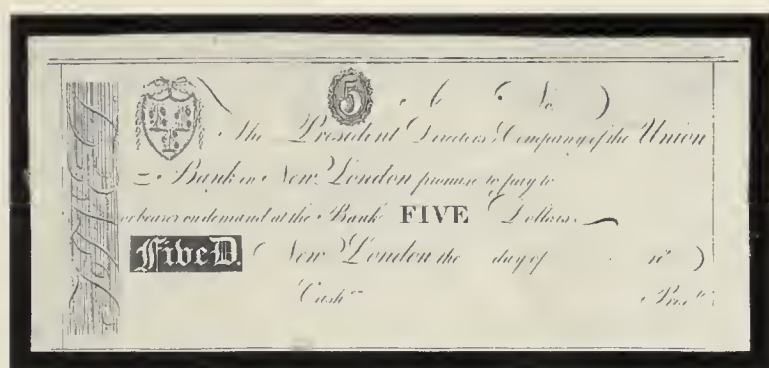 5 No.
The President Directors & Company of the Union
Bank in New London promise to pay to
or bearer on demand at the Bank FIVE Dollars.
Five D. New London the day of 18
Cashr. Presdt.